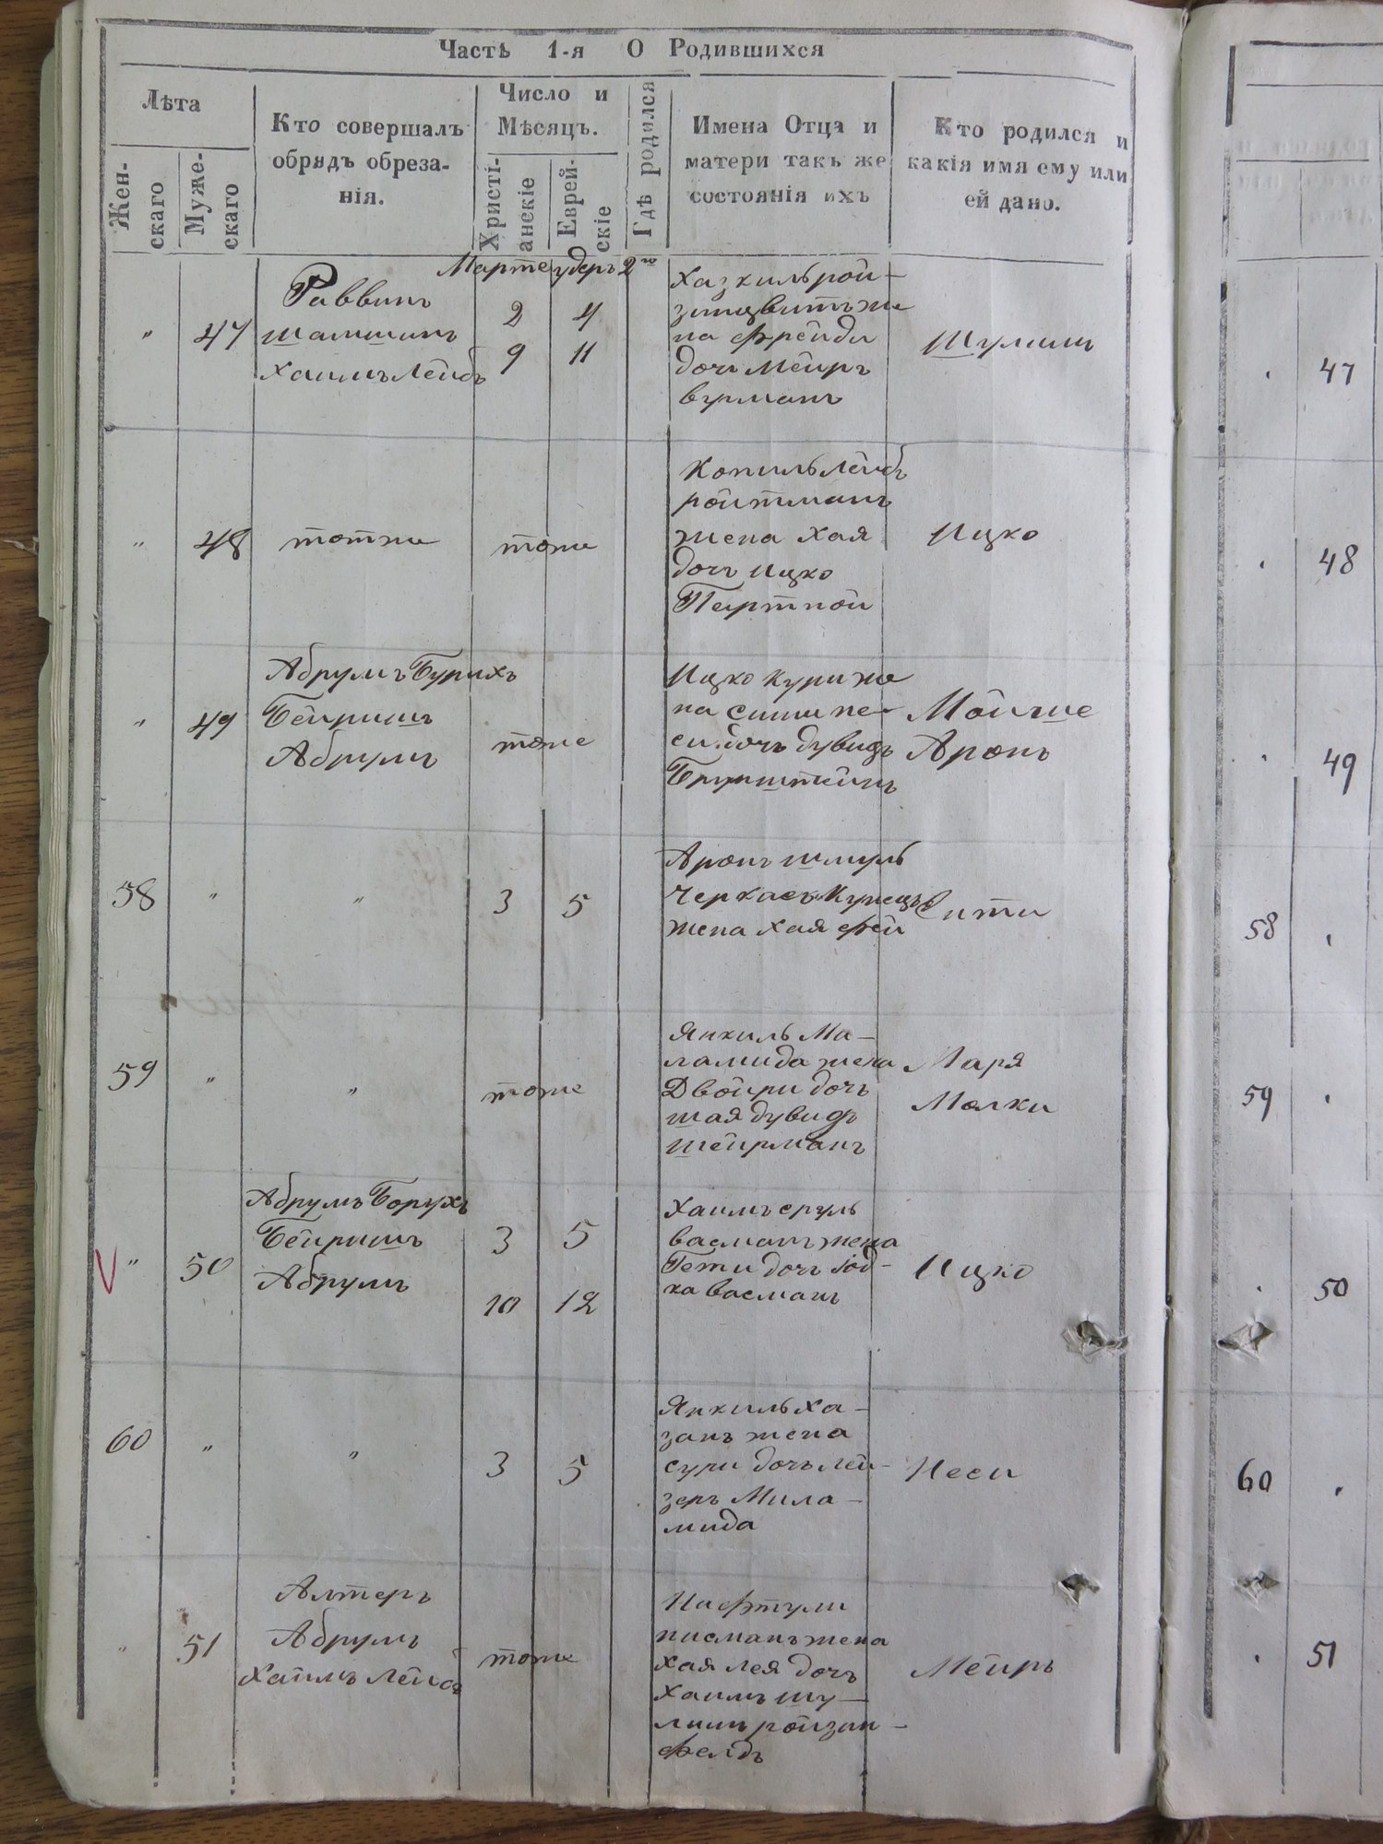 Часть 1-я О Родившихся
Лѣта
Жен-
скаго
Муже-
скаго
Кто совершалъ
обрядъ обреза-
нія.
Число и
Мѣсяцъ.
Христі-
анскіе
Еврей-
скіе
Гдѣ родился
Имена Отца и
матери такъ же
состоянія ихъ
Кто родился и
какія имя ему или
ей дано.
Марте удеръ 2го
" 47
Раввинъ
шамшинъ
Хаимъ Лейбъ
2 4
9 11
Хазкиль рой-
зинцвитъ же
на фрейди
дочь Мейръ
вурманъ
Шулимъ
" 48
тотже
тоже
Копиль Лейбъ
ройтманъ
жена Хая
дочь Ицко
Партной
Ицко
" 49
Абрумъ Бурихъ
Бейришъ
Абрумъ
тоже
Ицко Кури же
на сими пе-
си дочь дувидъ
Мойше
Аронъ
58 " " 3 5
Аронъ шмуль
Черкасъ Купецъ
жена Хая фей
Сити
59 " " тоже
Янкиль Ма-
ламида жена
Двойри дочь
шая дувидъ
шейрманъ
Маря
Малки
V " 50
Абрумъ Борухъ
Бейришъ
Абрумъ
3 5
10 12
Хаимъ сруль
васманъ жена
Гети дочь Іод-
ка васманъ
Ицко
60 " " 3 5
Янкиль Ха-
занъ жена
сури дочь лей-
зеръ Мила-
мида
Неси
" 51
Алтеръ
Абрумъ
Хаимъ Лейбъ
тоже
Нафтули
писманъ жена
Хая лея дочь
Хаимъ шу-
лимъ ройзин-
фелдъ
Мейръ
47
48
49
58
59
50
60
51